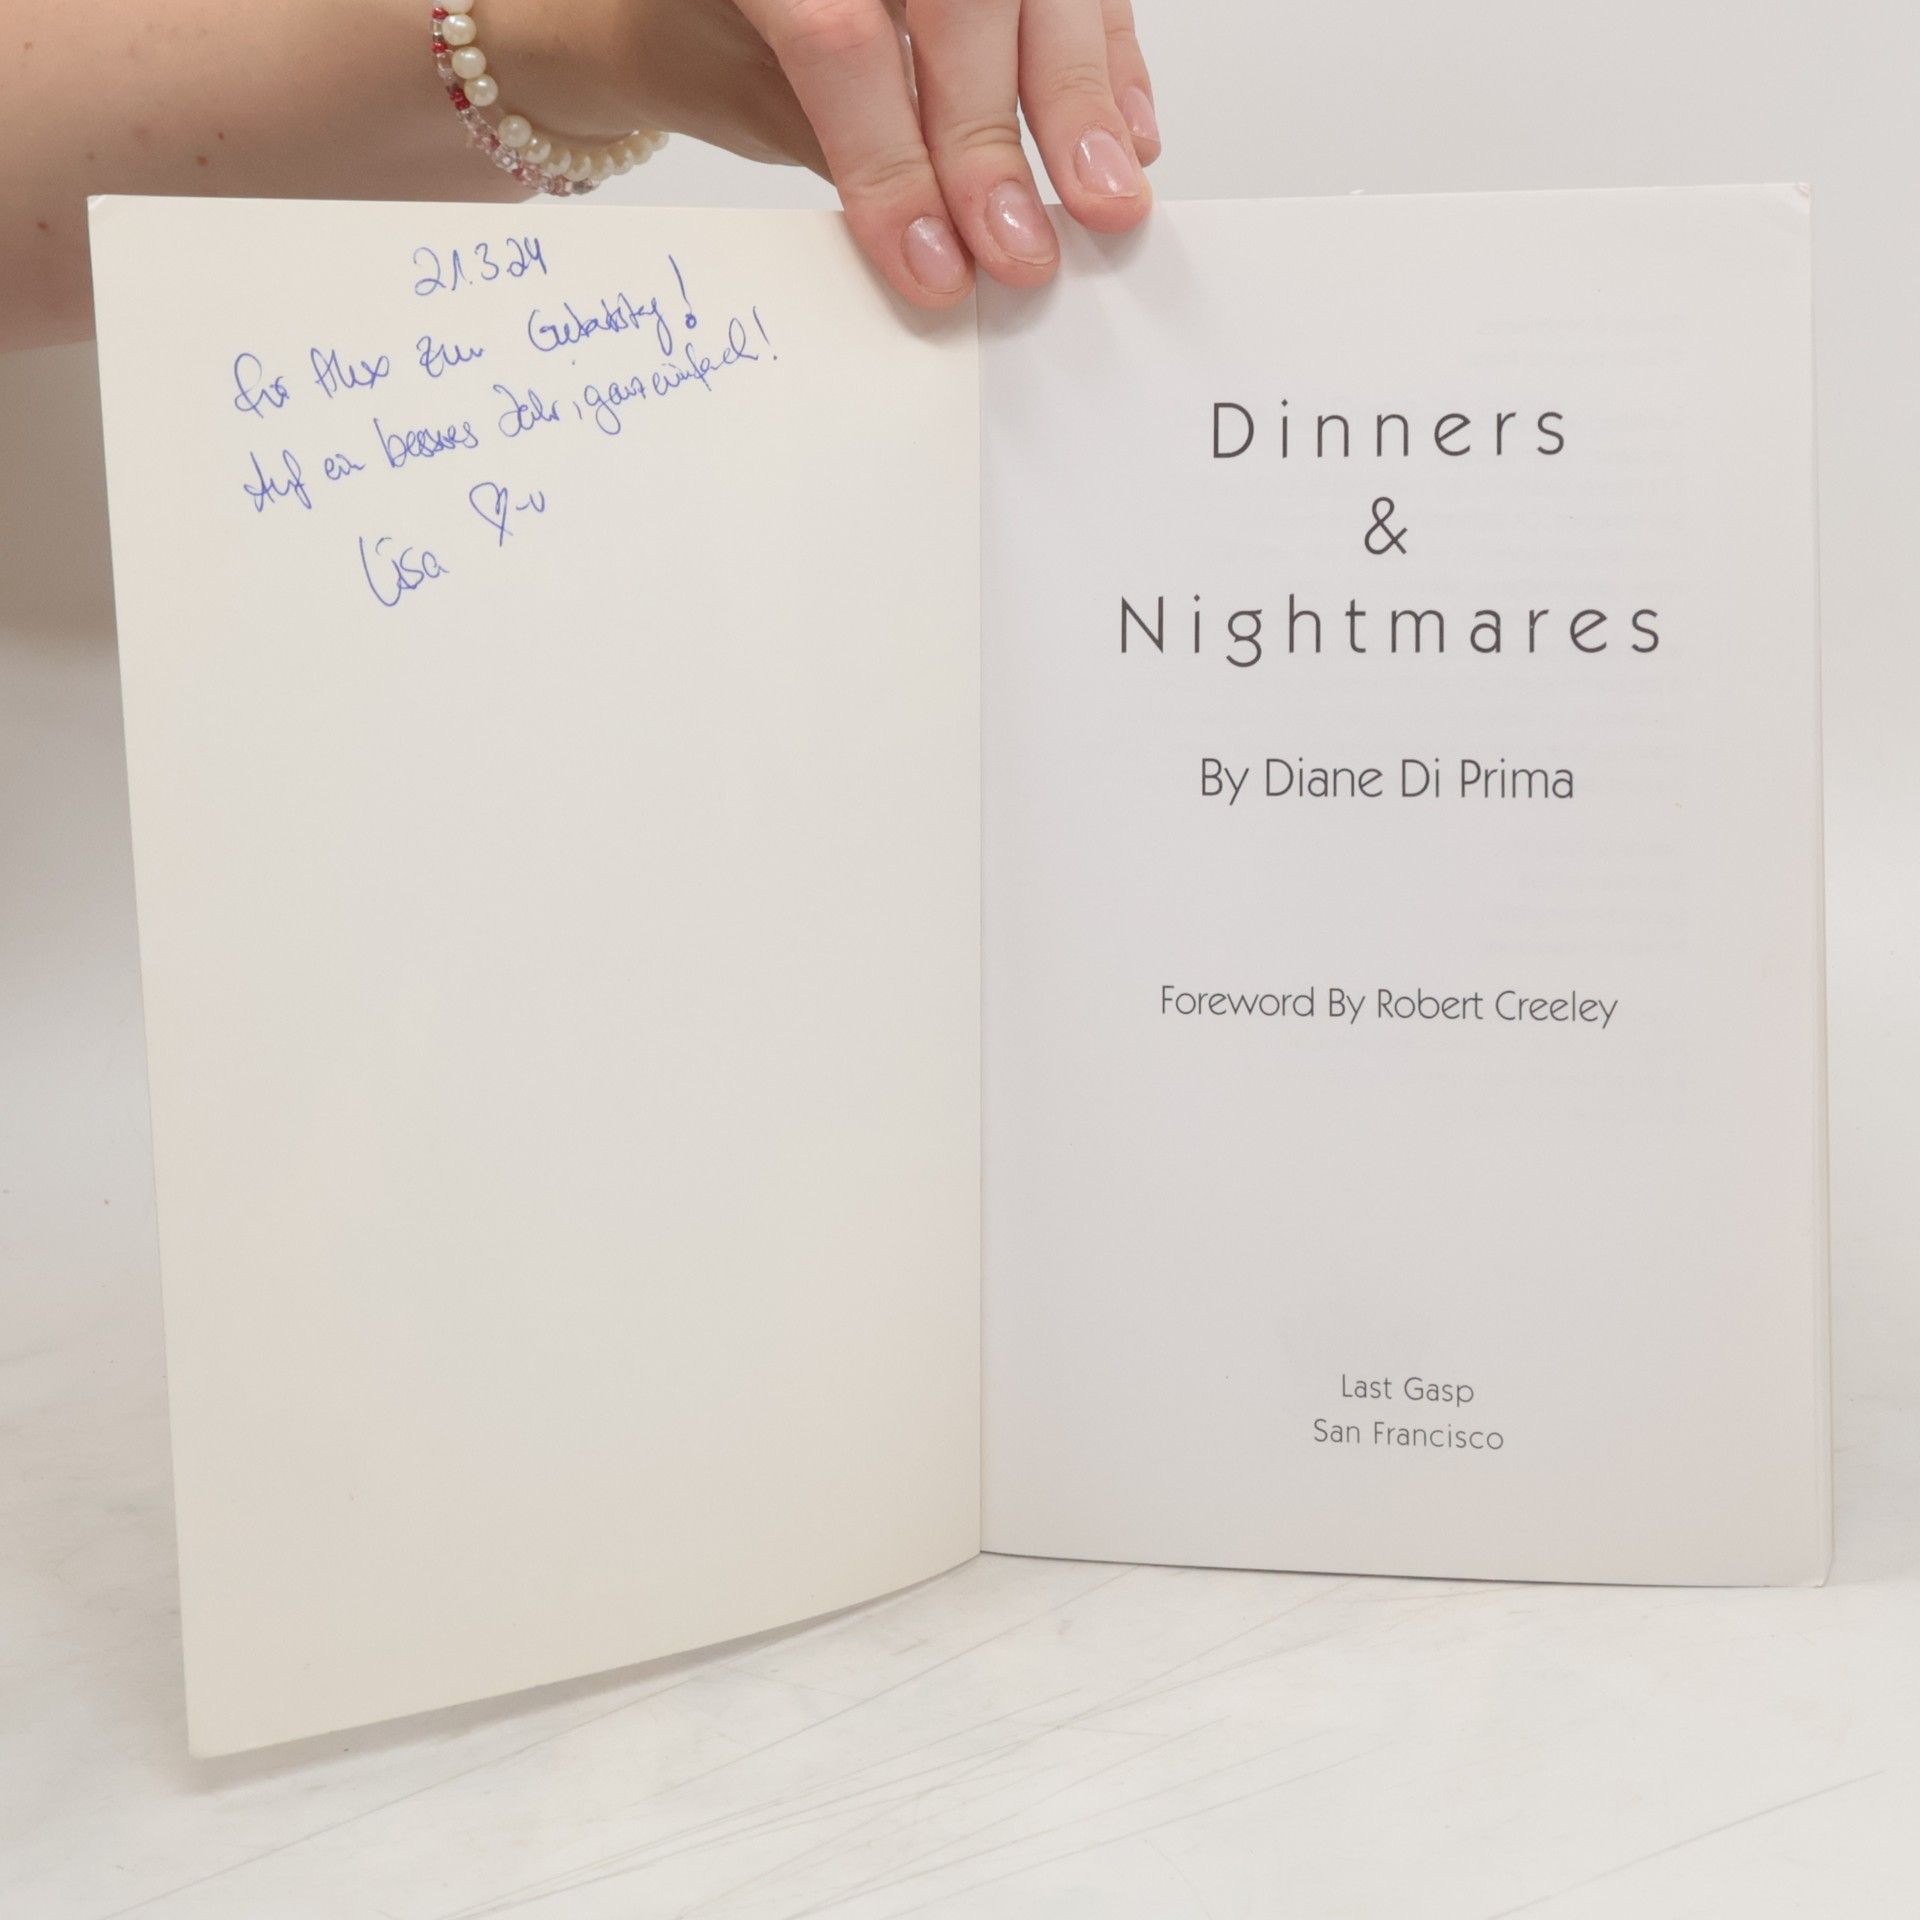 21.3.24
Für Alex zum Geburtstag!
Auf ein besseres Jahr, ganz einfach!
Lisa
Dinners
&
Nightmares
By Diane Di Prima
Foreword By Robert Creeley
Last Gasp
San Francisco